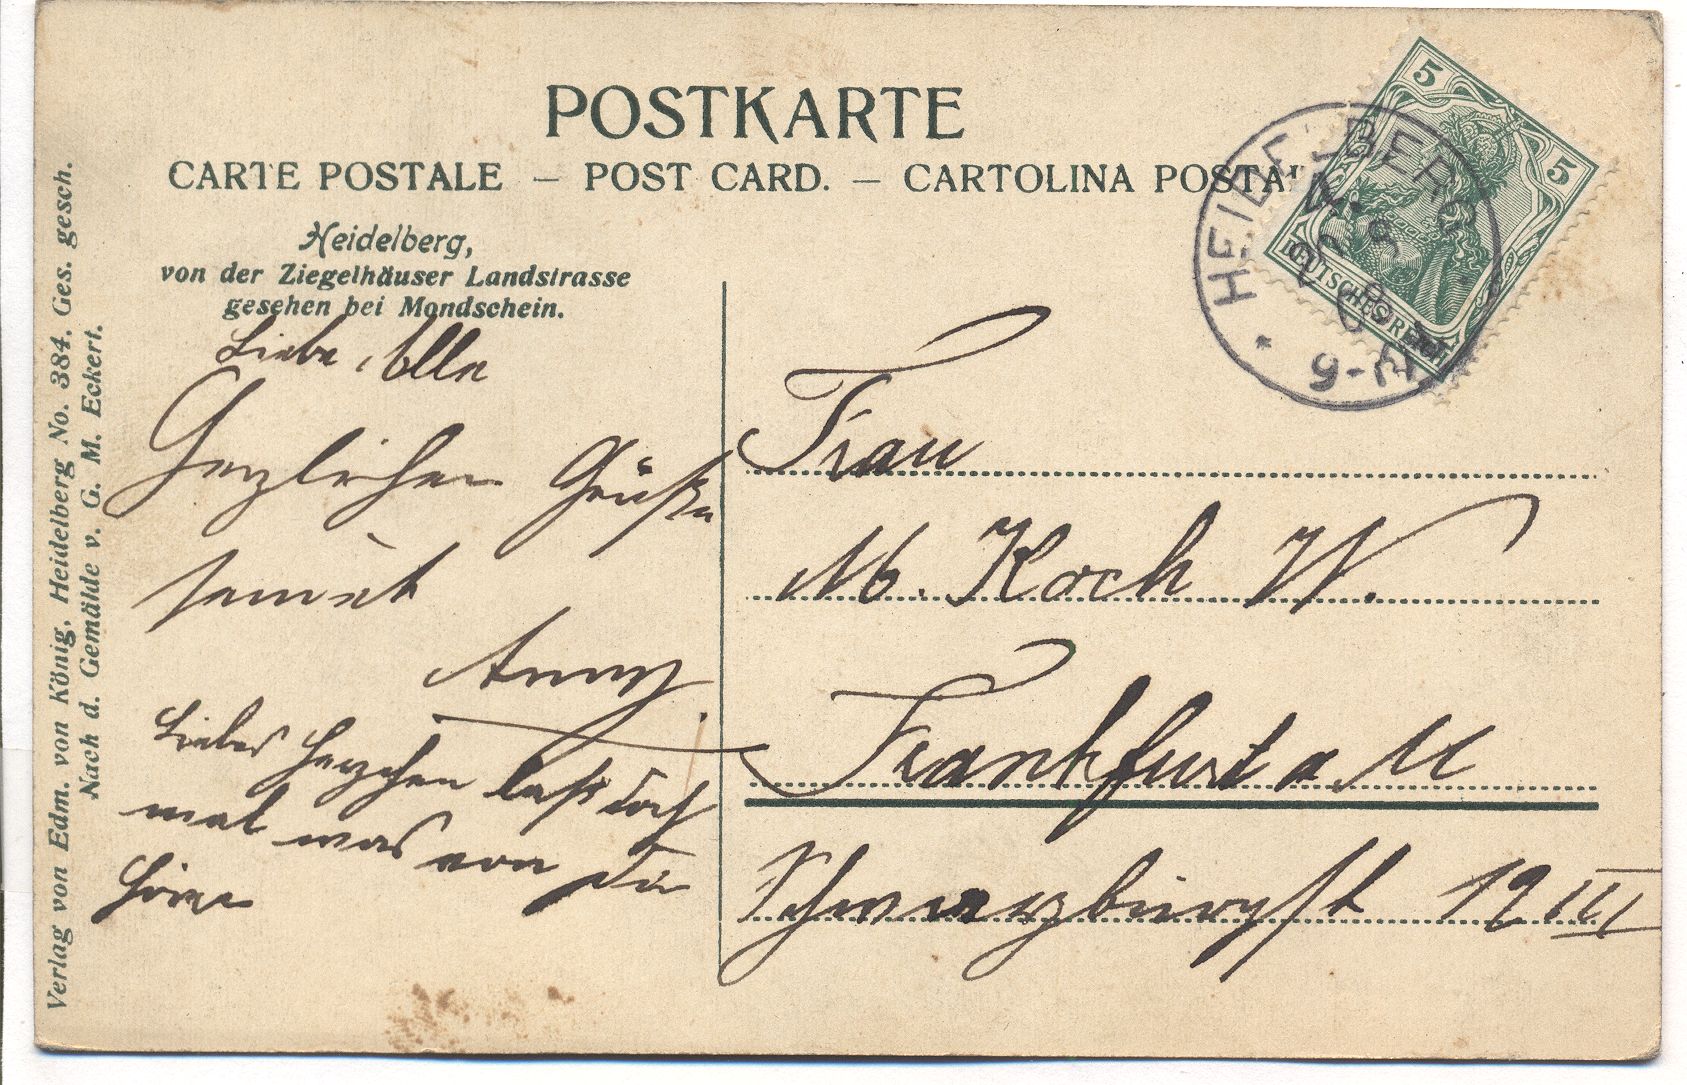 POSTKARTE
CARTE POSTALE – POST CARD. – CARTOLINA POSTAL
Heidelberg,
von der Ziegelhäuser Landstrasse
gesehen bei Mondschein.
Verlag von Edm. von König, Heidelberg No. 384. Ges. gesch.
Nach d. Gemälde v. G. M. Eckert.
5
5
DEUTSCHES REICH
HEIDELBERG
Liebe Alle
Herzlichen Grüße
Anny
Liebes Herzchen laß doch
mal was von Dir
hören
Frau
M. Koch W.
Frankfurt a M
Schwarzburgst 12 III